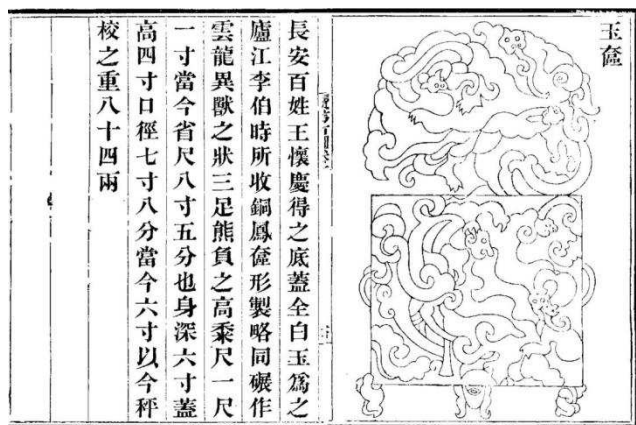 玉奩
長安百姓王懷慶得之底蓋全白玉爲之
廬江李伯時所收銅鳳奩形製略同碾作
雲龍異獸之狀三足熊負之高黍尺一尺
一寸當今省尺八寸五分也身深六寸蓋
高四寸口徑七寸八分當今六寸以今秤
校之重八十四兩